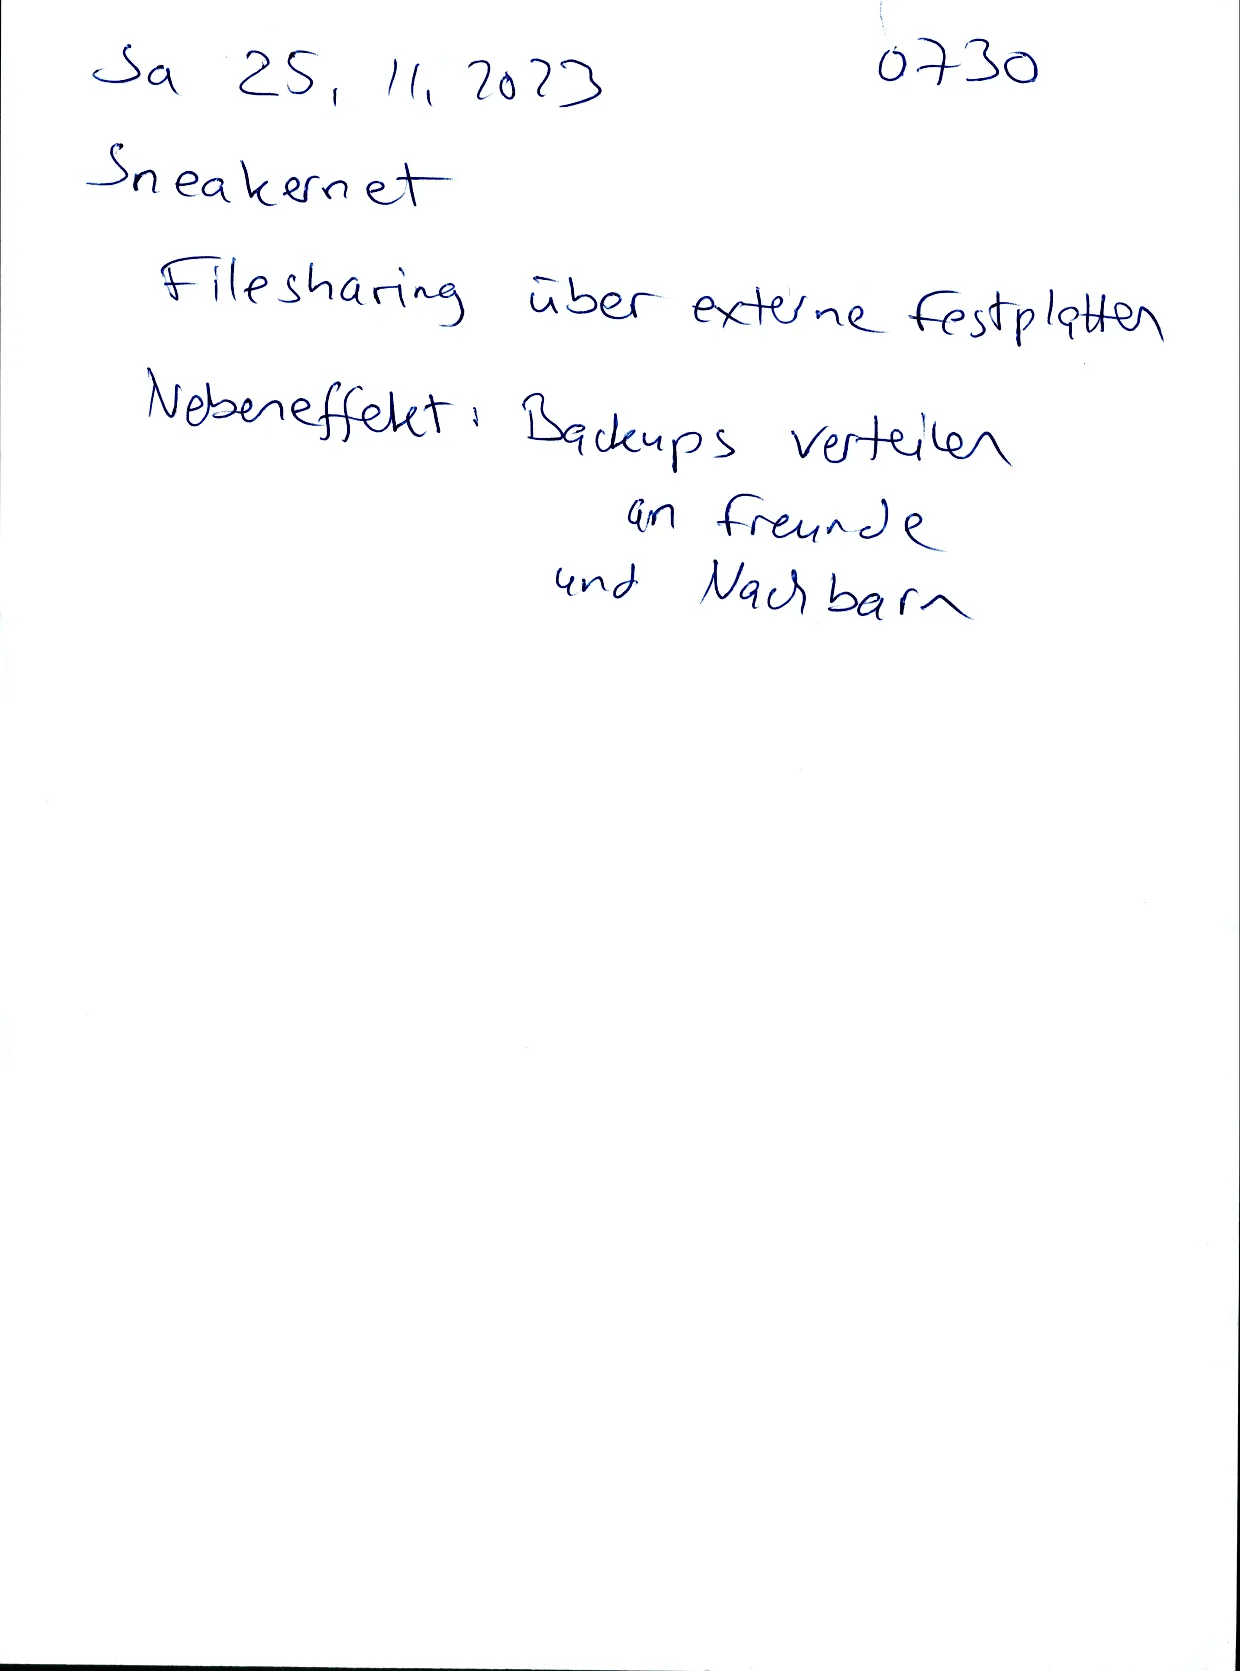 Sa 25.11.2023 0730
Sneakernet
Filesharing über externe Festplatten
Nebeneffekt: Backups verteilen
an Freunde
und Nachbarn